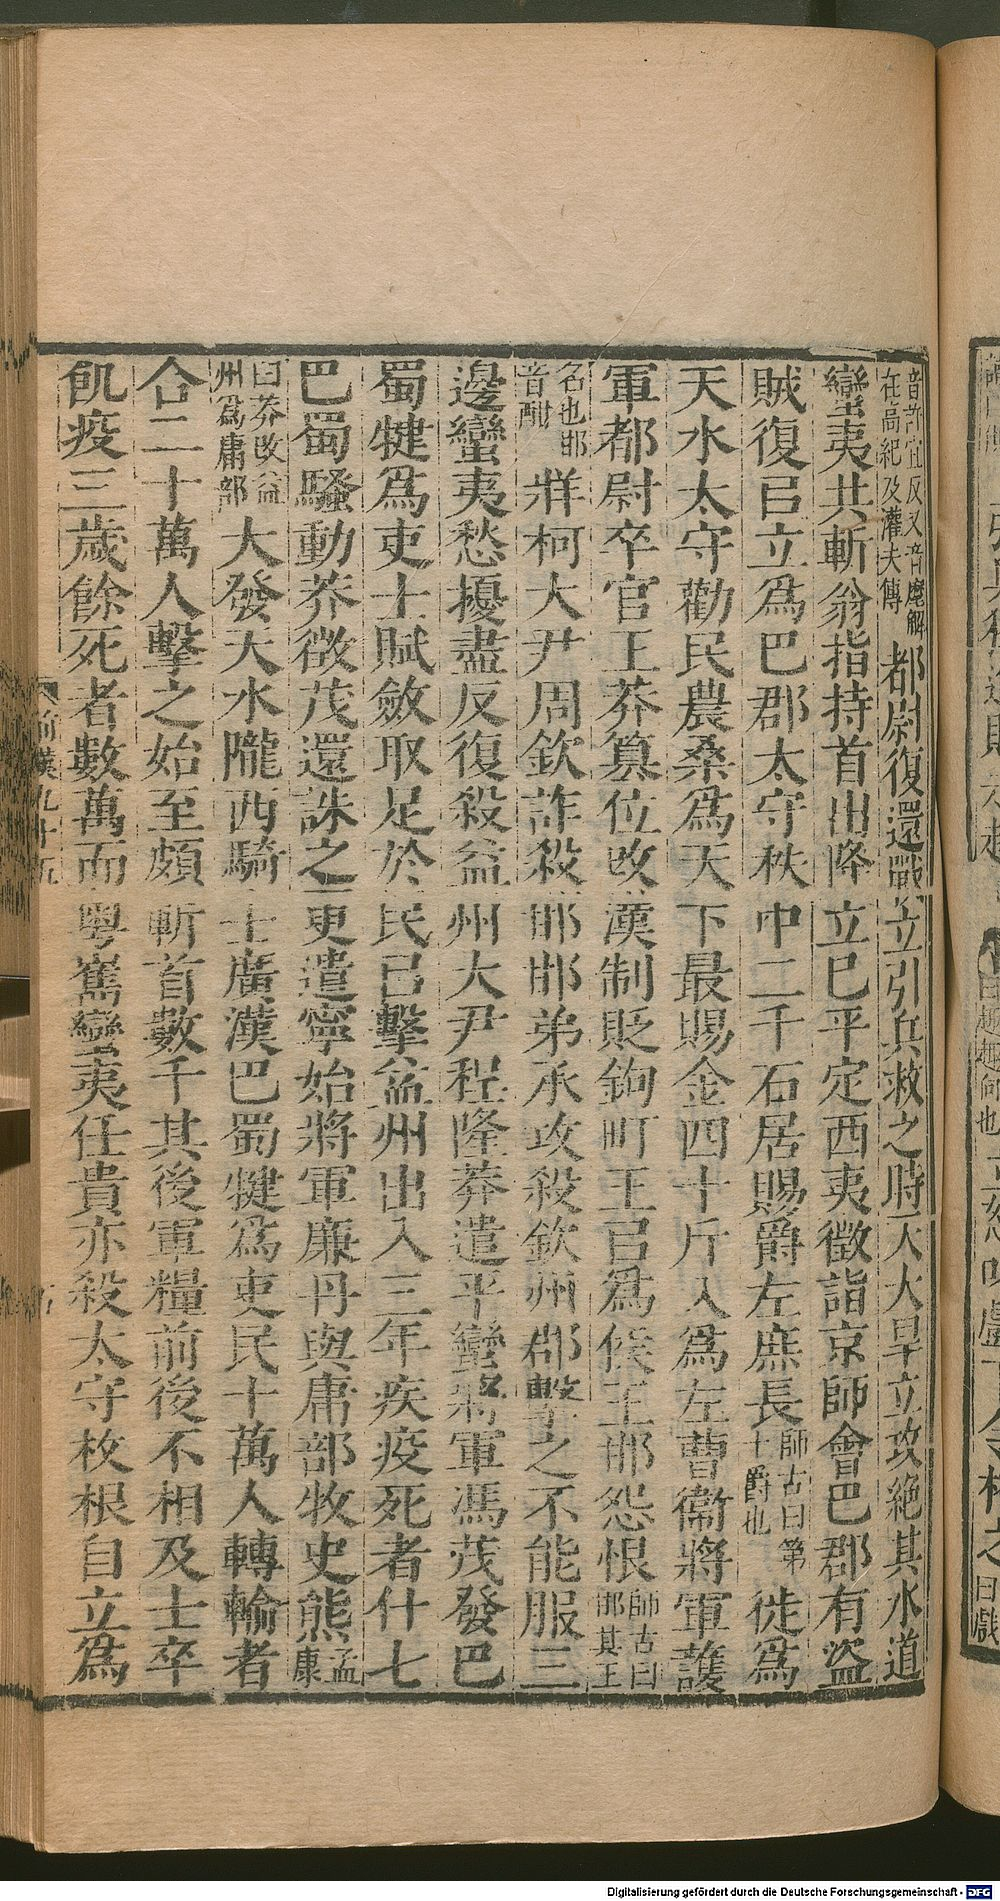 音許宜反又音麾解在高紀及灌夫傳都尉復還戰立引兵救之時天大旱立攻絕其水道
蠻夷共斬翁指持首出降立已平定西夷徵詣京師會巴郡有盜
賊復㠯立爲巴郡太守秩中二千石居賜爵左庶長師古曰第十爵也徙爲
天水太守勸民農桑爲天下最賜金四十斤入爲左曹衞將軍護
軍都尉卒官王莽篡位改漢制貶鉤町王㠯爲侯王邯怨恨師古曰邯其王
名也邯音酣牂柯大尹周欽詐殺邯邯弟承攻殺欽州郡擊之不能服三
邊蠻夷愁擾盡反復殺益州大尹程隆莽遣平蠻將軍馮茂發巴
蜀犍爲吏士賦斂取足於民㠯擊益州出入三年疾疫死者什七
巴蜀騷動莽徵茂還誅之更遣寧始將軍廉丹與庸部牧史熊孟康
曰莽改益州爲庸部大發天水隴西騎士廣漢巴蜀犍爲吏民十萬人轉輸者
合二十萬人擊之始至頗斬首數千其後軍糧前後不相及士卒
飢疫三歲餘死者數萬而粤嶲蠻夷任貴亦殺太守枚根自立爲
前漢九十五
Digitalisierung gefördert durch die Deutsche Forschungsgemeinschaft - DFG